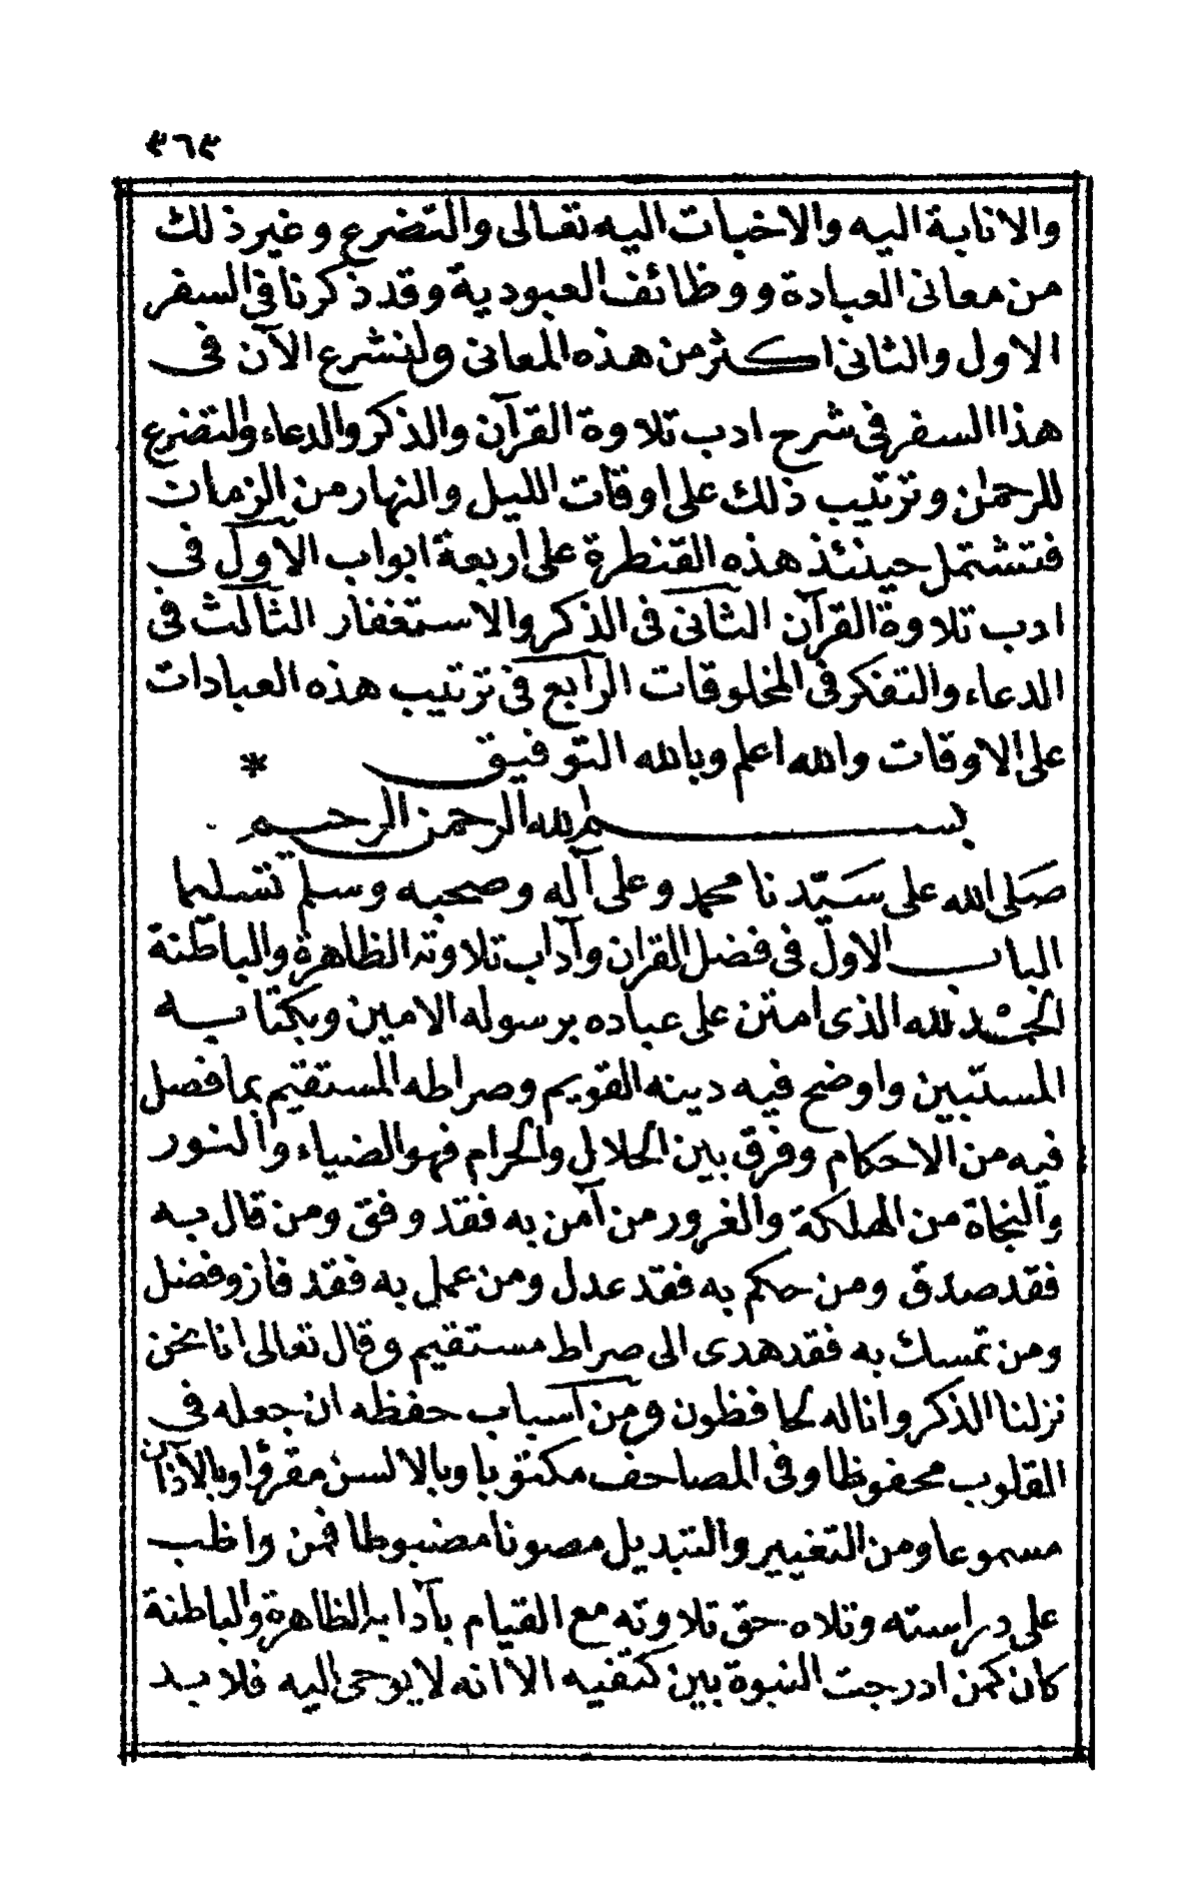 ٣٦٣
والانابة اليه والاخبات اليه تعالى والتضرع وغير ذلك
من معانى العبادة ووظائف العبودية وقد ذكرنا في السفر
الاول والثانى اكثر من هذه المعانى ولنشرع الآن فى
هذا السفر فى شرح ادب تلاوة القرآن والذكر والدعاء والتضرع
للرحمن وترتيب ذلك على اوقات الليل والنهار من الزمان
فتشتمل حينئذ هذه القنطرة على اربعة ابواب الاول فى
ادب تلاوة القرآن الثانى فى الذكر والاستغفار الثالث فى
الدعاء والتفكر فى المخلوقات الرابع فى ترتيب هذه العبادات
على الاوقات والله اعلم وبالله التوفيق *
بسم الله الرحمن الرحيم
صَلى الله على سَيّدنا محمد وعلى آله وصحبه وسلم تسليما
الباب الاول فى فضل القران وآداب تلاوته الظاهرة والباطنة
الحمد لله الذى امتن على عباده برسوله الامين وبكتابه
المستبين واوضح فيه دينه القويم وصراطه المستقيم بما فصل
فيه من الاحكام وفرق بين الحلال والحرام فهو الضياء والنور
والنجاة من الهلكة والغرور من آمن به فقد وفق ومن قال به
فقد صدق ومن حكم به فقد عدل ومن عمل به فقد فاز وفضل
ومن تمسك به فقد هدى الى صراط مستقيم وقال تعالى انا نحن
نزلنا الذكر وانا له لحافظون ومن آسباب حفظه ان جعله فى
القلوب محفوظا وفى المصاحف مكتوبا وبالالسن مقرؤا وبالآذان
مسموعا ومن التغيير والتبديل مصونا مضبوطا فمن واظب
على دراسته وتلاه حق تلاوته مع القيام بآدابه الظاهرة والباطنة
كان كمن ادرجت النبوة بين كتفيه الا انه لا يوحى اليه فلا بد